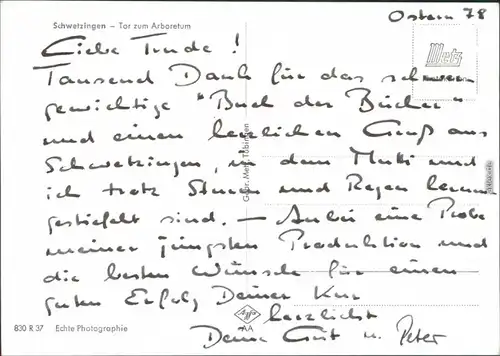 Schwetzingen — Tor zum Arboretum
Ostern 78
Metz
Liebe Trude !
Tausend Dank für das schwer
gewichtige "Buch der Bücher"
und einen herzlichen Gruß aus
Schwetzingen, in dem Mutti und
ich trotz Sturm und Regen herum
gestiefelt sind. — Anbei eine Probe
meiner jüngsten Produktion und
die besten Wünsche für einen
guten Erfolg Deiner Kur
herzlichst
Deine Gut u. Peter
Gebr. Metz, Tübingen
Agfa
AA
830 R 37 Echte Photographie